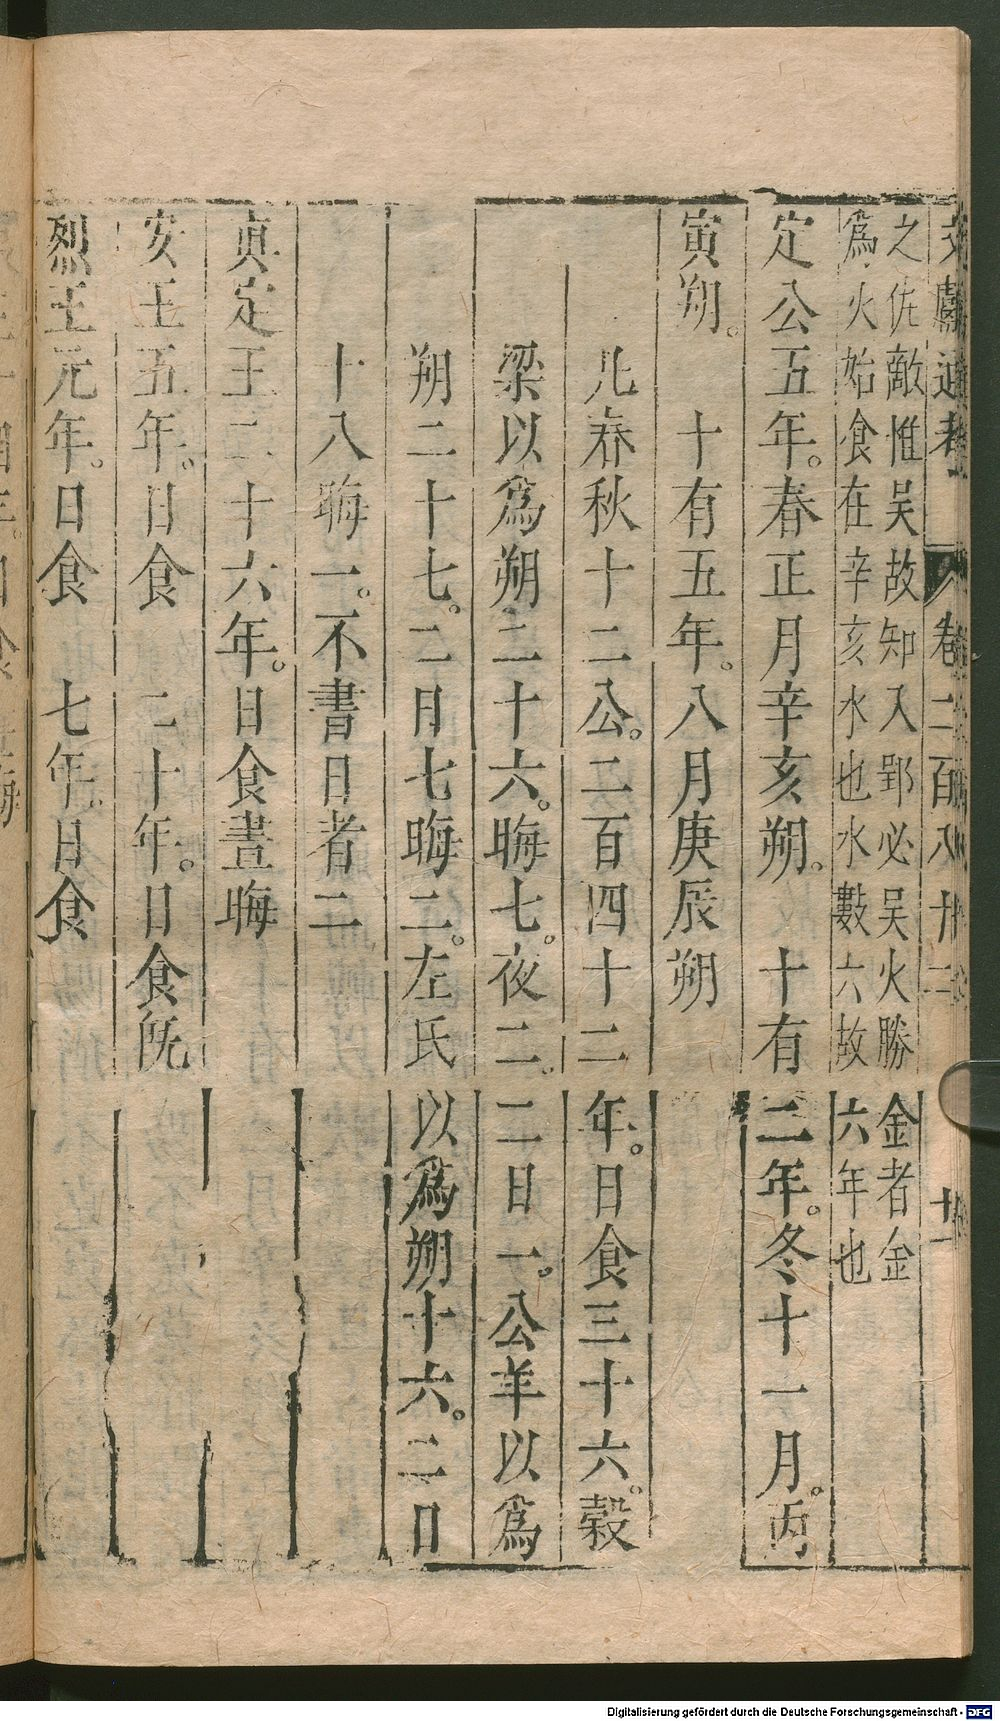 文獻通考 卷二百八十二 十一
之佐敵惟吳故知入郢必吳火勝金者金
爲火始食在辛亥亥水也水數六故六年也
定公五年。春正月辛亥朔。 十有二年。冬十一月。丙
寅朔。 十有五年。八月庚辰朔
凡春秋十二公。二百四十二年。日食三十六。穀
梁以爲朔二十六。晦七。夜二。二日一。公羊以爲
朔二十七。二月七晦二。左氏以爲朔十六。二日
十八晦一。不書日者二
貞定王二十六年。日食晝晦
安王五年。日食 二十年。日食旣
烈王元年。日食 七年。日食
Digitalisierung gefördert durch die Deutsche Forschungsgemeinschaft - DFG